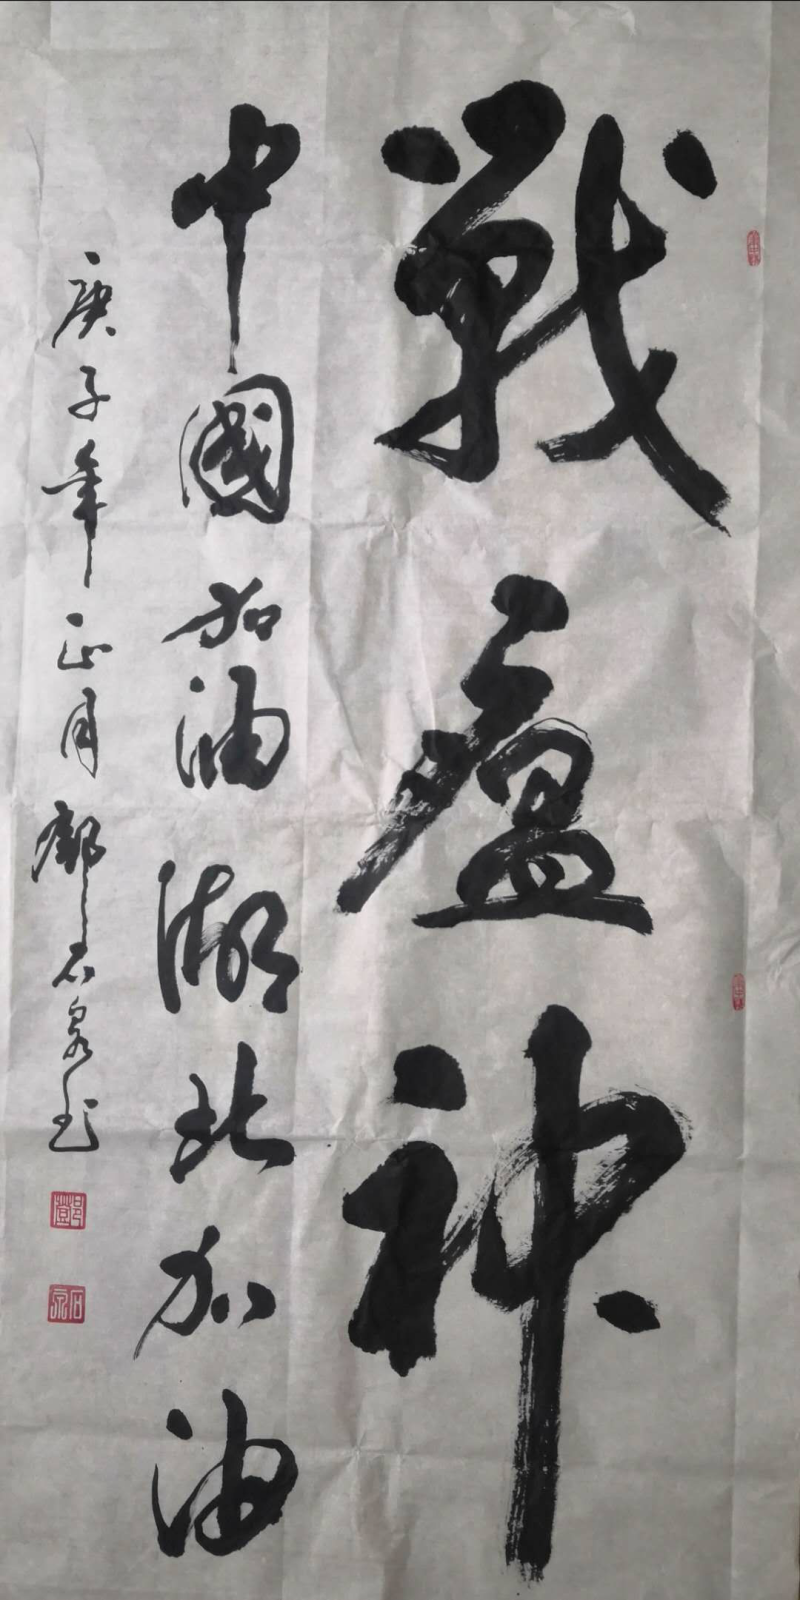 戰瘟神
中國加油 湖北加油
庚子年正月鄧石泉书